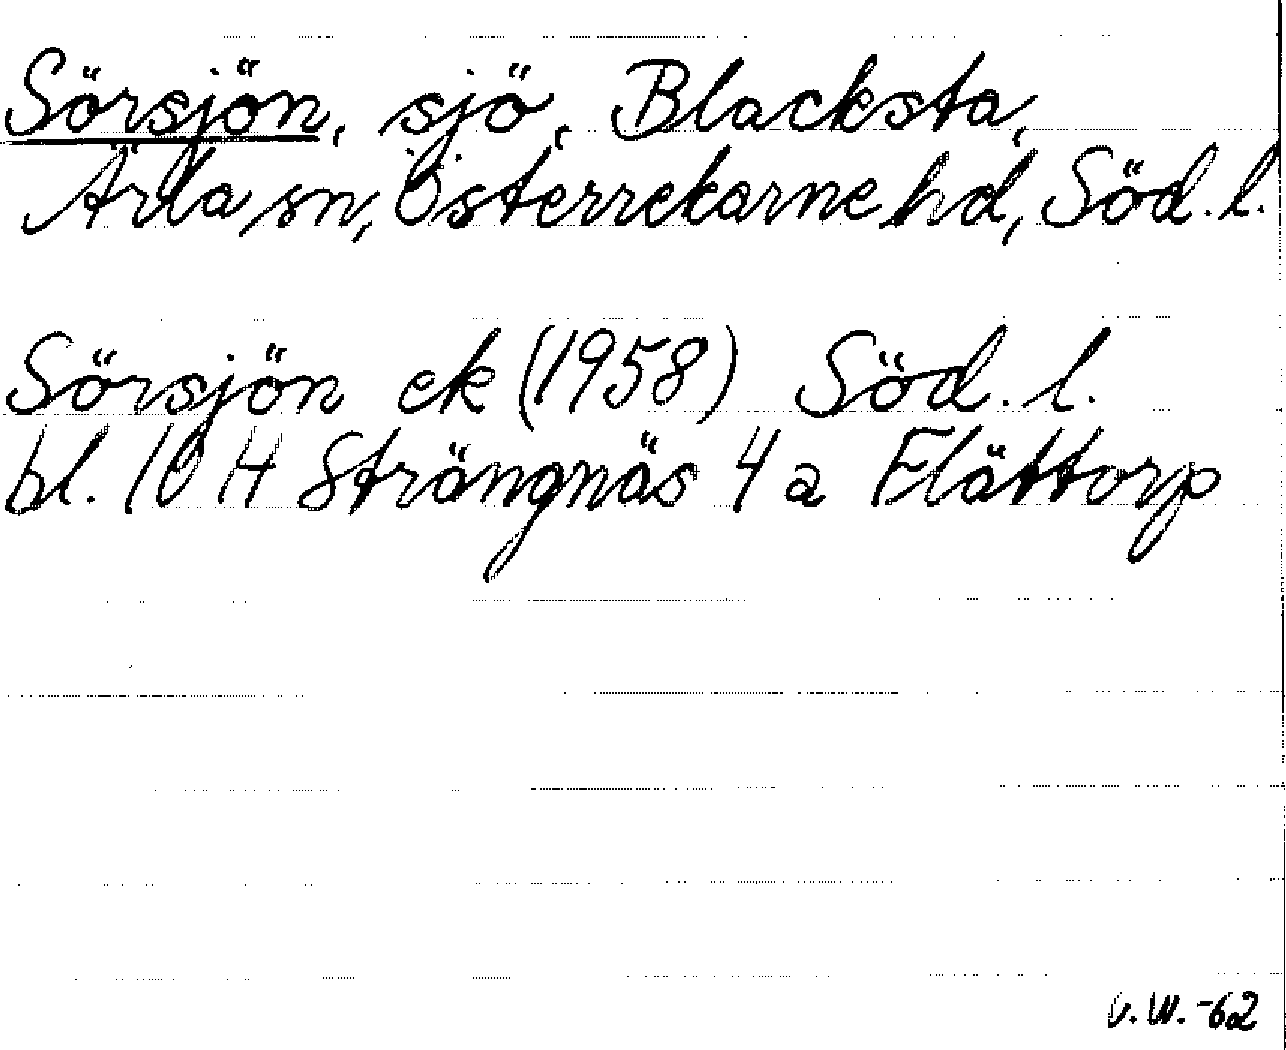 Sörsjön, sjö, Blacksta,
Ärla sn, Österrekarne hd, Söd. l.
Sörsjön ek (1958) Söd. l.
bl. 10 H Strängnäs 4 a Flättorp
v. W. -62